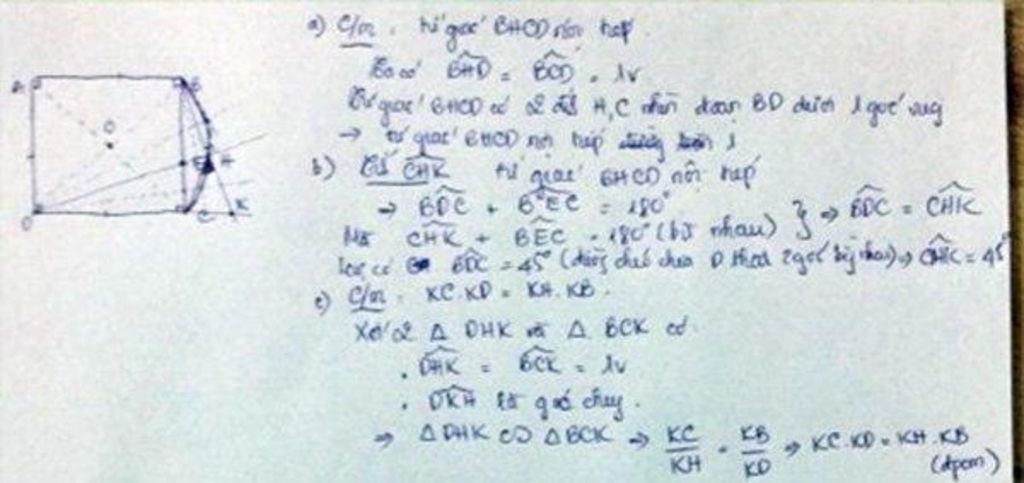 a) C/m. tứ giác BHCD nội tiếp.
Ta có BHD = BCD = 1v
Tứ giác BHCD có 2 đỉnh H,C nhìn đoạn BD dưới 1 góc vuông
→ tứ giác BHCD nội tiếp
b) CHK tứ giác BHCD nội tiếp
→ BDC + BEC = 180°
Mà CHK + BEC = 180° (bù nhau) } ⇒ BDC = CHK
BDC = 45° (đường chéo chia D thành 2 góc bằng nhau) ⇒ CHK = 45°
c) C/m. KC.KD = KH.KB.
Xét 2 Δ DHK và Δ BCK có
. DHK = BCK = 1v
. DKH là góc chung.
⇒ Δ DHK ∽ Δ BCK ⇒ KC/KH = KB/KD ⇒ KC.KD = KH.KB
(đpcm)
A B O E H D C K